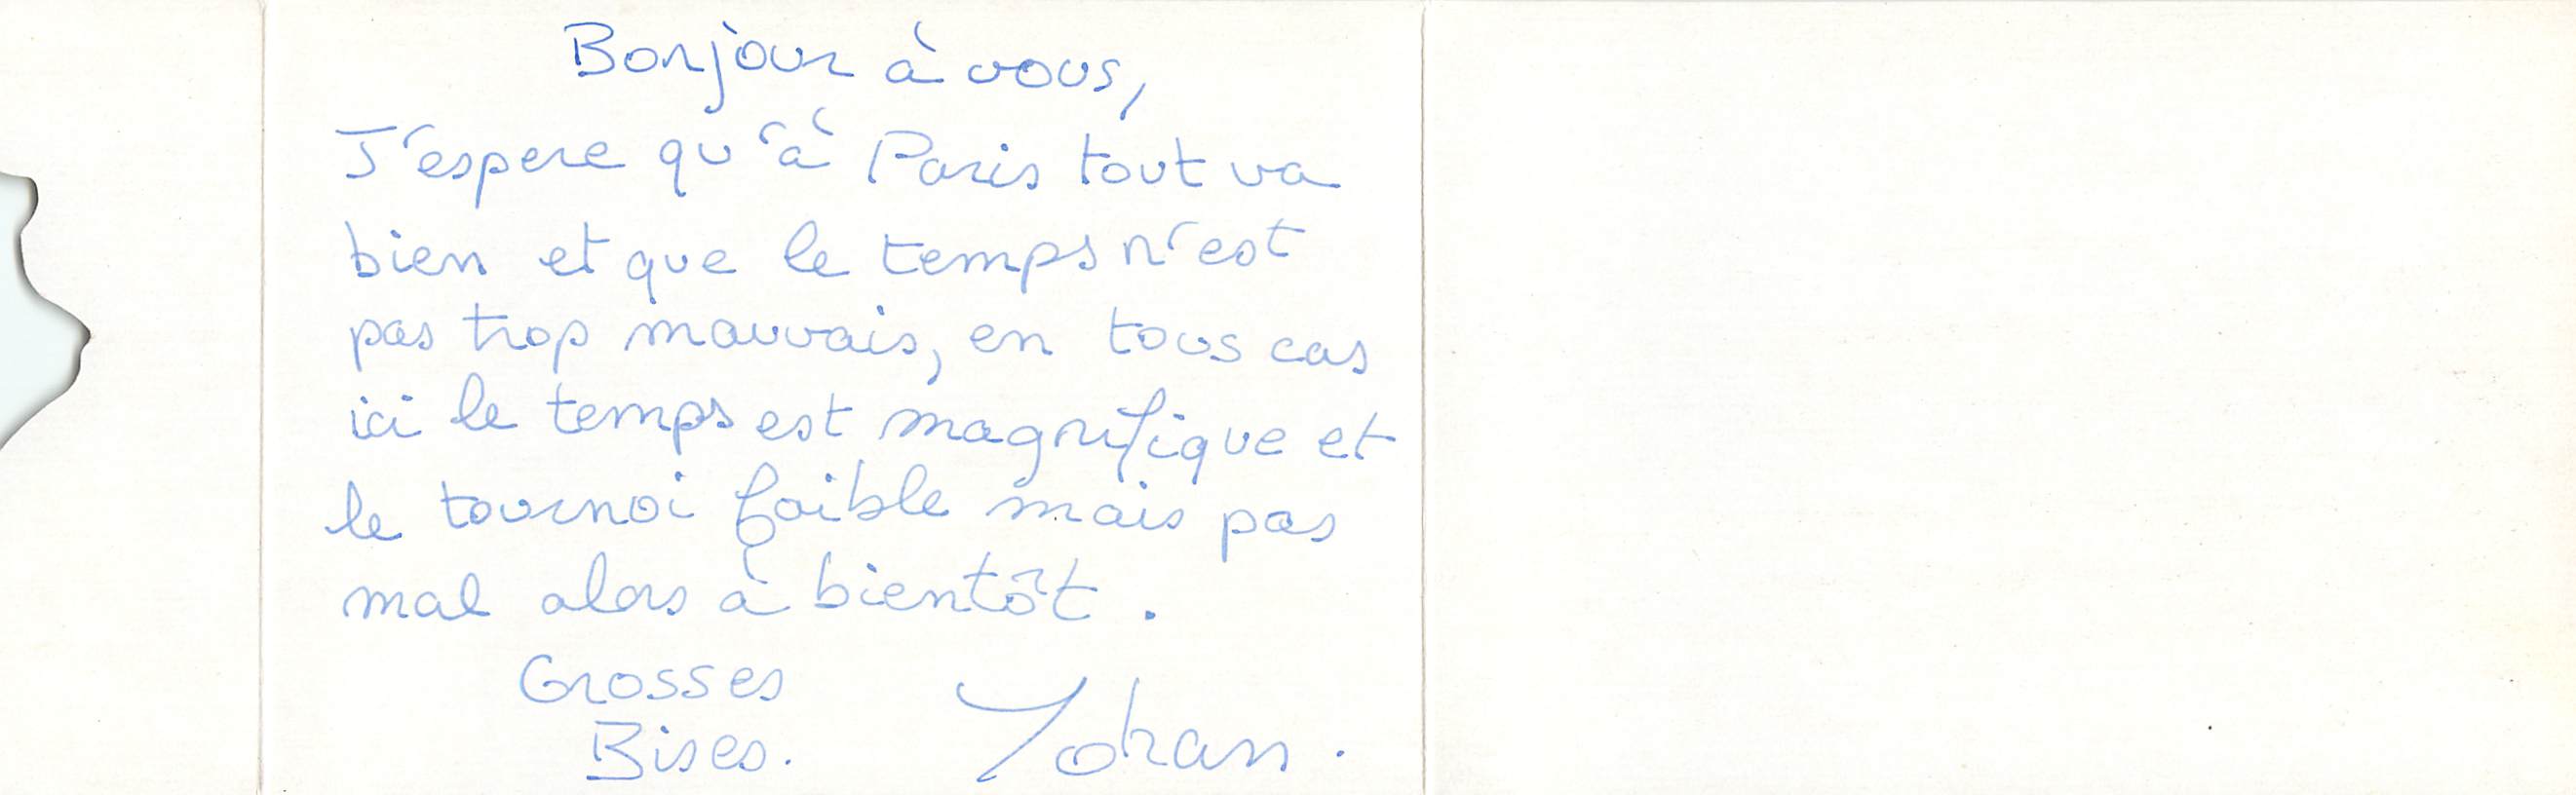 Bonjour à vous,
J'espere qu'à Paris tout va
bien et que le temps n'est
pas trop mauvais, en tous cas
ici le temps est magnifique et
le tournoi faible mais pas
mal alors à bientôt.
Grosses
Bises. Yohan.